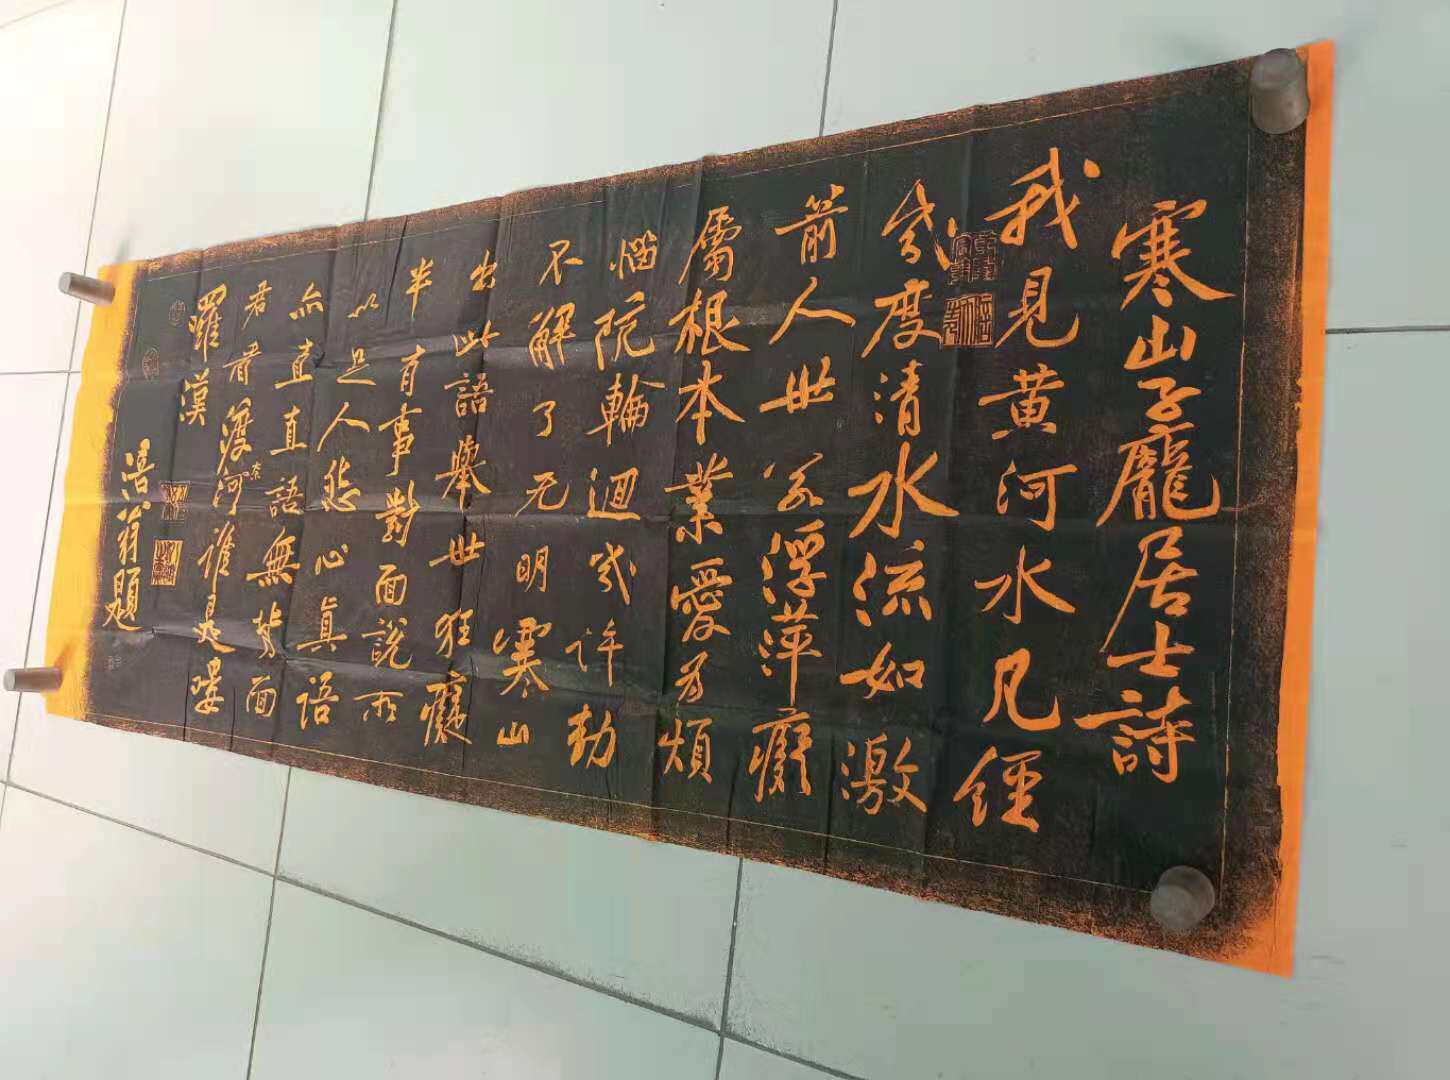 寒山子龐居士詩
我見黄河水凡經
幾度清水流如激
箭人世若浮萍癡
屬根本業愛為煩
惱阬輪迴幾許劫
不解了无明寒山
出此語舉世狂癡
半有事對面說所
以足人怨心真語
亦直直語無背面
君看渡奈河誰是嘍
囉漢
涪翁題